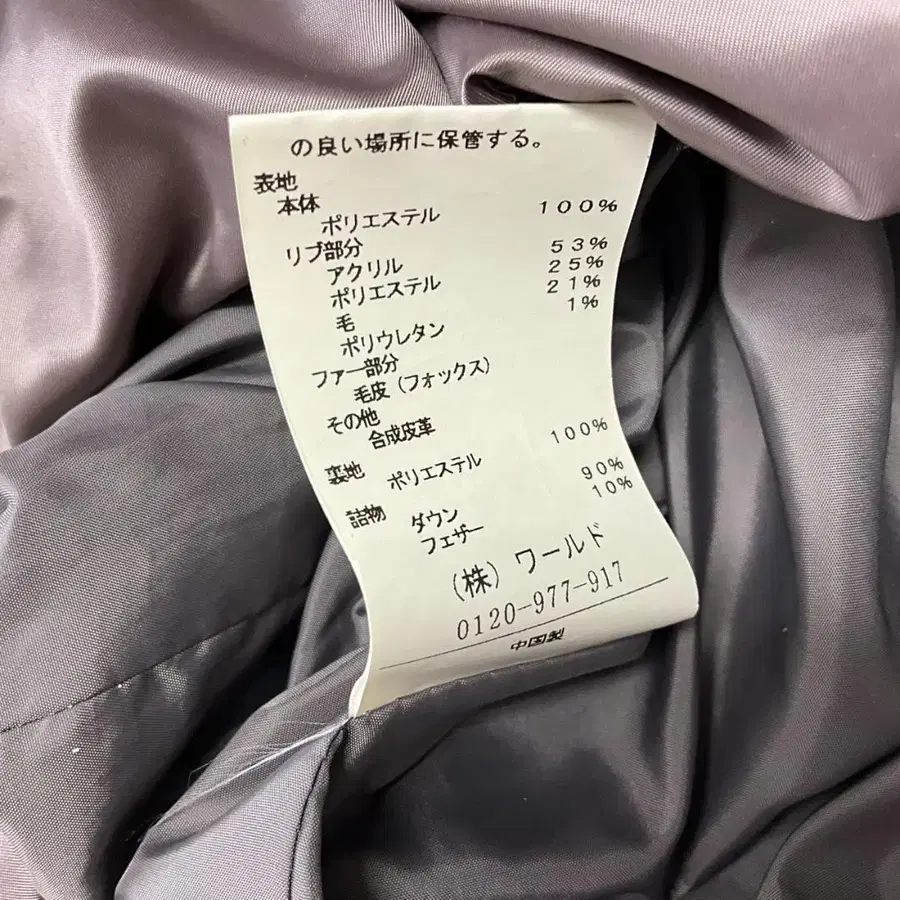 の良い場所に保管する。
表地
本体
ポリエステル 100%
リブ部分
アクリル 53%
ポリエステル 25%
毛 21%
ポリウレタン 1%
ファー部分
毛皮(フォックス)
その他
合成皮革
裏地 ポリエステル 100%
詰物 ダウン 90%
フェザー 10%
(株)ワールド
0120-977-917
中国製